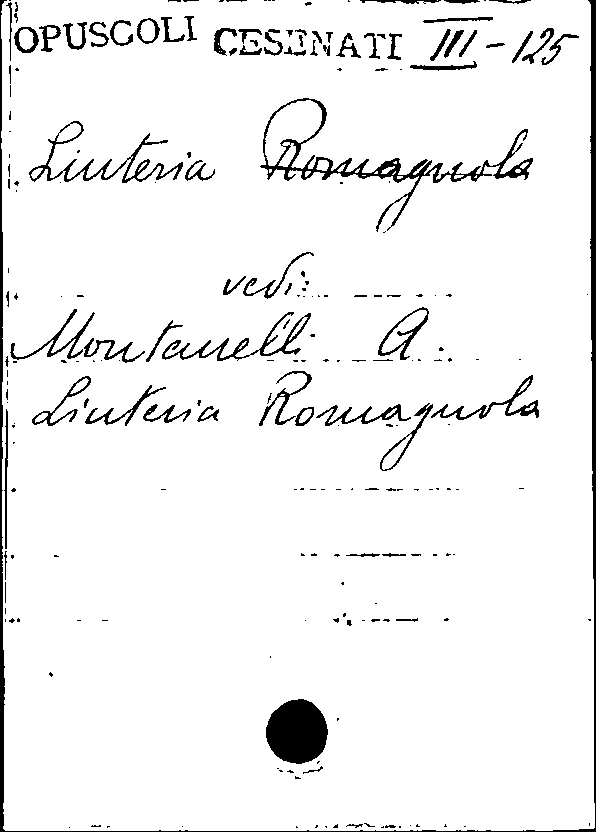 OPUSCOLI CESENATI III - 125
Liuteria Romagnola
vedi:
Montanelli A.
Liuteria Romagnola